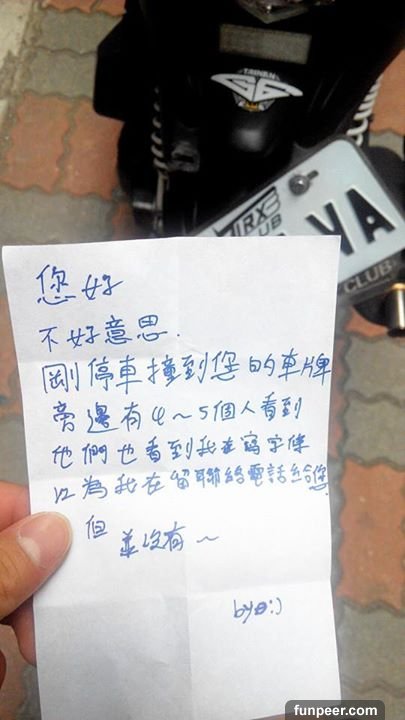 TAINAN
G6
TIRX3
CLUB
VA
CLUB
您好
不好意思.
剛停車撞到您的車牌
旁邊有4~5個人看到
他們也看到我在寫字條
以為我在留聯絡電話給您.
但
並沒有~
by :)
funpeer.com